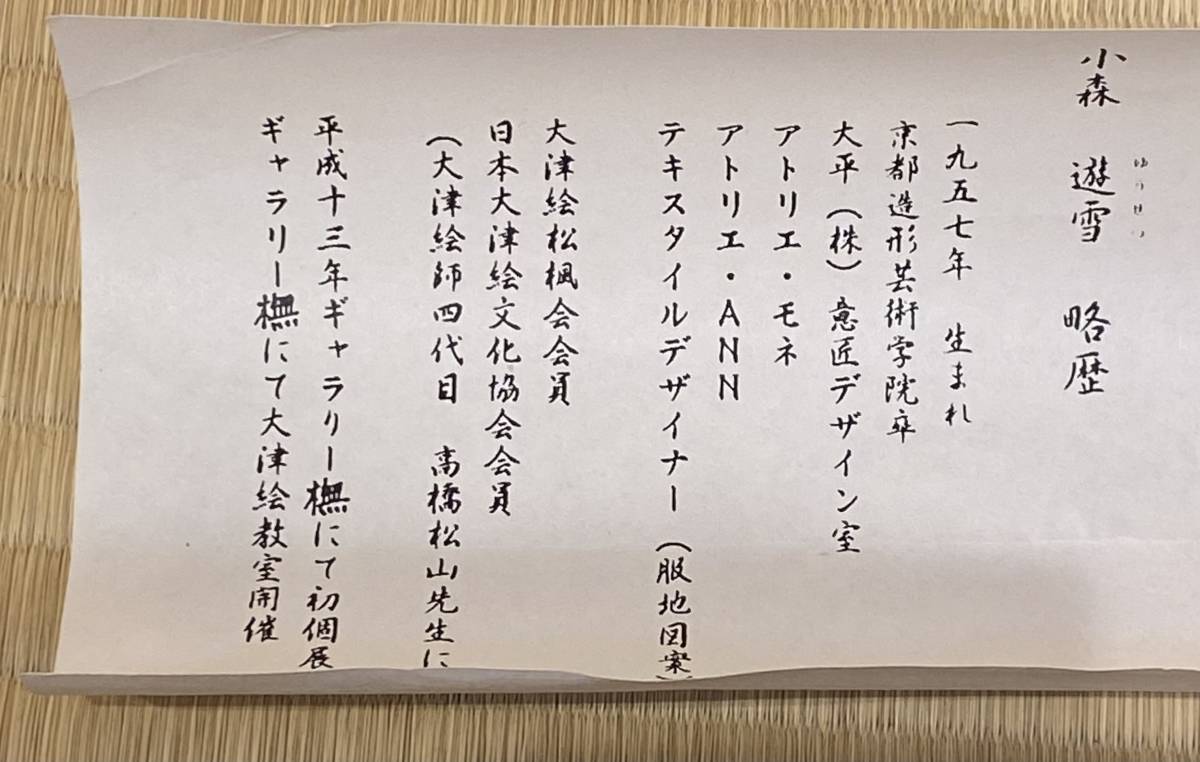 小森 遊雪 略歴
ゆうせつ
一九五七年 生まれ
京都造形芸術学院卒
大平(株)意匠デザイン室
アトリエ・モネ
アトリエ・ANN
テキスタイルデザイナー(服地図案)
大津絵松楓会会員
日本大津絵文化協会会員
(大津絵師四代目 高橋松山先生に
平成十三年ギャラリー橅にて初個展
ギャラリー橅にて大津絵教室開催